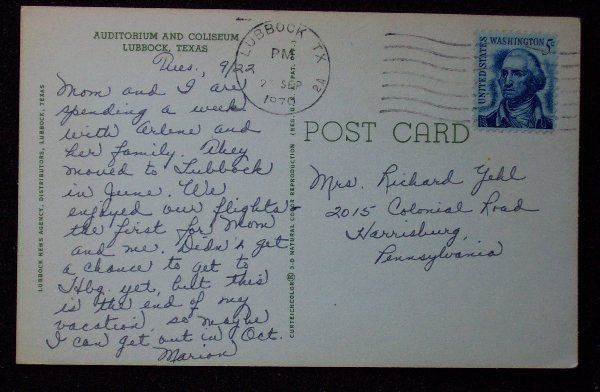 AUDITORIUM AND COLISEUM
LUBBOCK, TEXAS
Tues., 9/22
Mom and I are
spending a week
with Arlene and
her family. They
moved to Lubbock
in June. We
enjoyed our flights -
the first for Mom
and me. Didn't get
a chance to get to
Hbg. yet, but this
is the end of my
vacation so maybe
I can get out in Oct.
Marion
LUBBOCK NEWS AGENCY, DISTRIBUTORS, LUBBOCK, TEXAS
CURTEICHCOLOR® 3-D NATURAL COLOR REPRODUCTION (REG. U.S.A. PAT. OFF.)
LUBBOCK TX
PM
SEP
1970
UNITED STATES
WASHINGTON 5c
POST CARD
Mrs. Richard Yehl
2015 Colonial Road
Harrisburg,
Pennsylvania